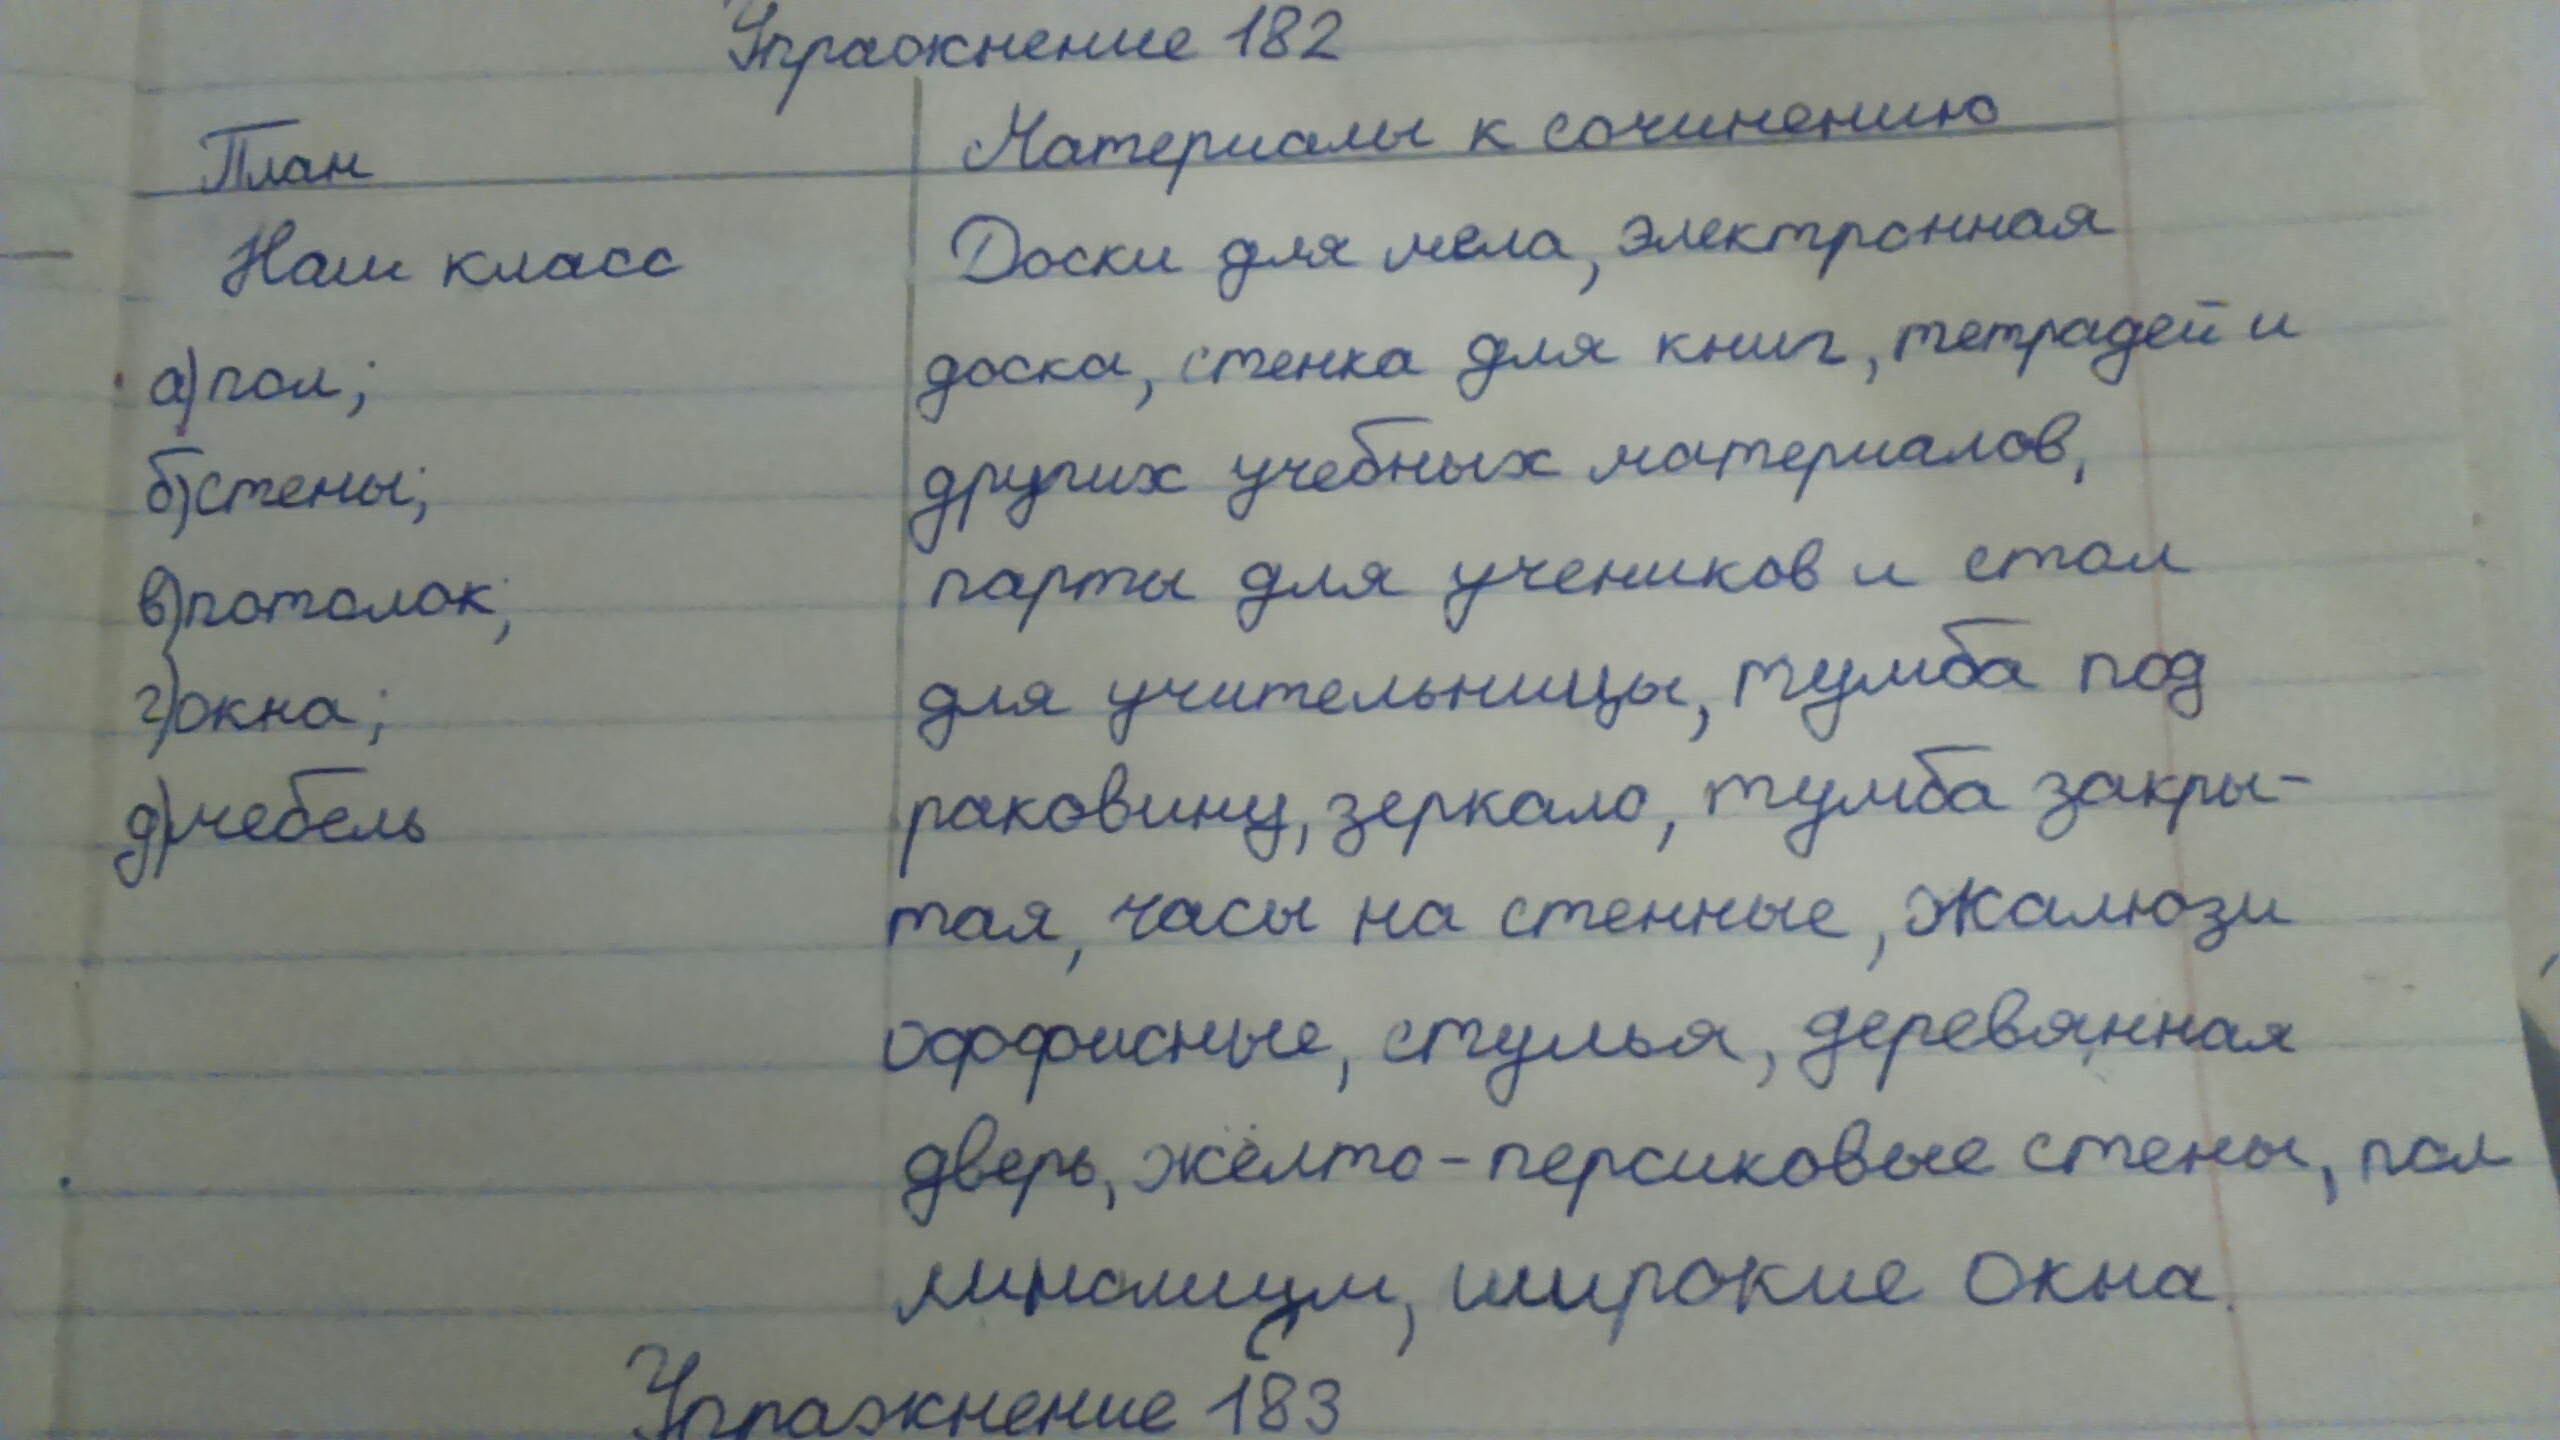 Упражнение 182
План
Материалы к сочинению
Наш класс
а) пол;
б) стены;
в) потолок;
г) окна;
д) мебель
Доски для мела, электронная
доска, стенка для книг, тетрадей и
других учебных материалов,
парты для учеников и стол
для учительницы, тумба под
раковину, зеркало, тумба закры-
тая, часы на стенные, жалюзи
оффисные, стулья, деревянная
дверь, жёлто-персиковые стены, пол
линолиум, широкие окна.
Упражнение 183